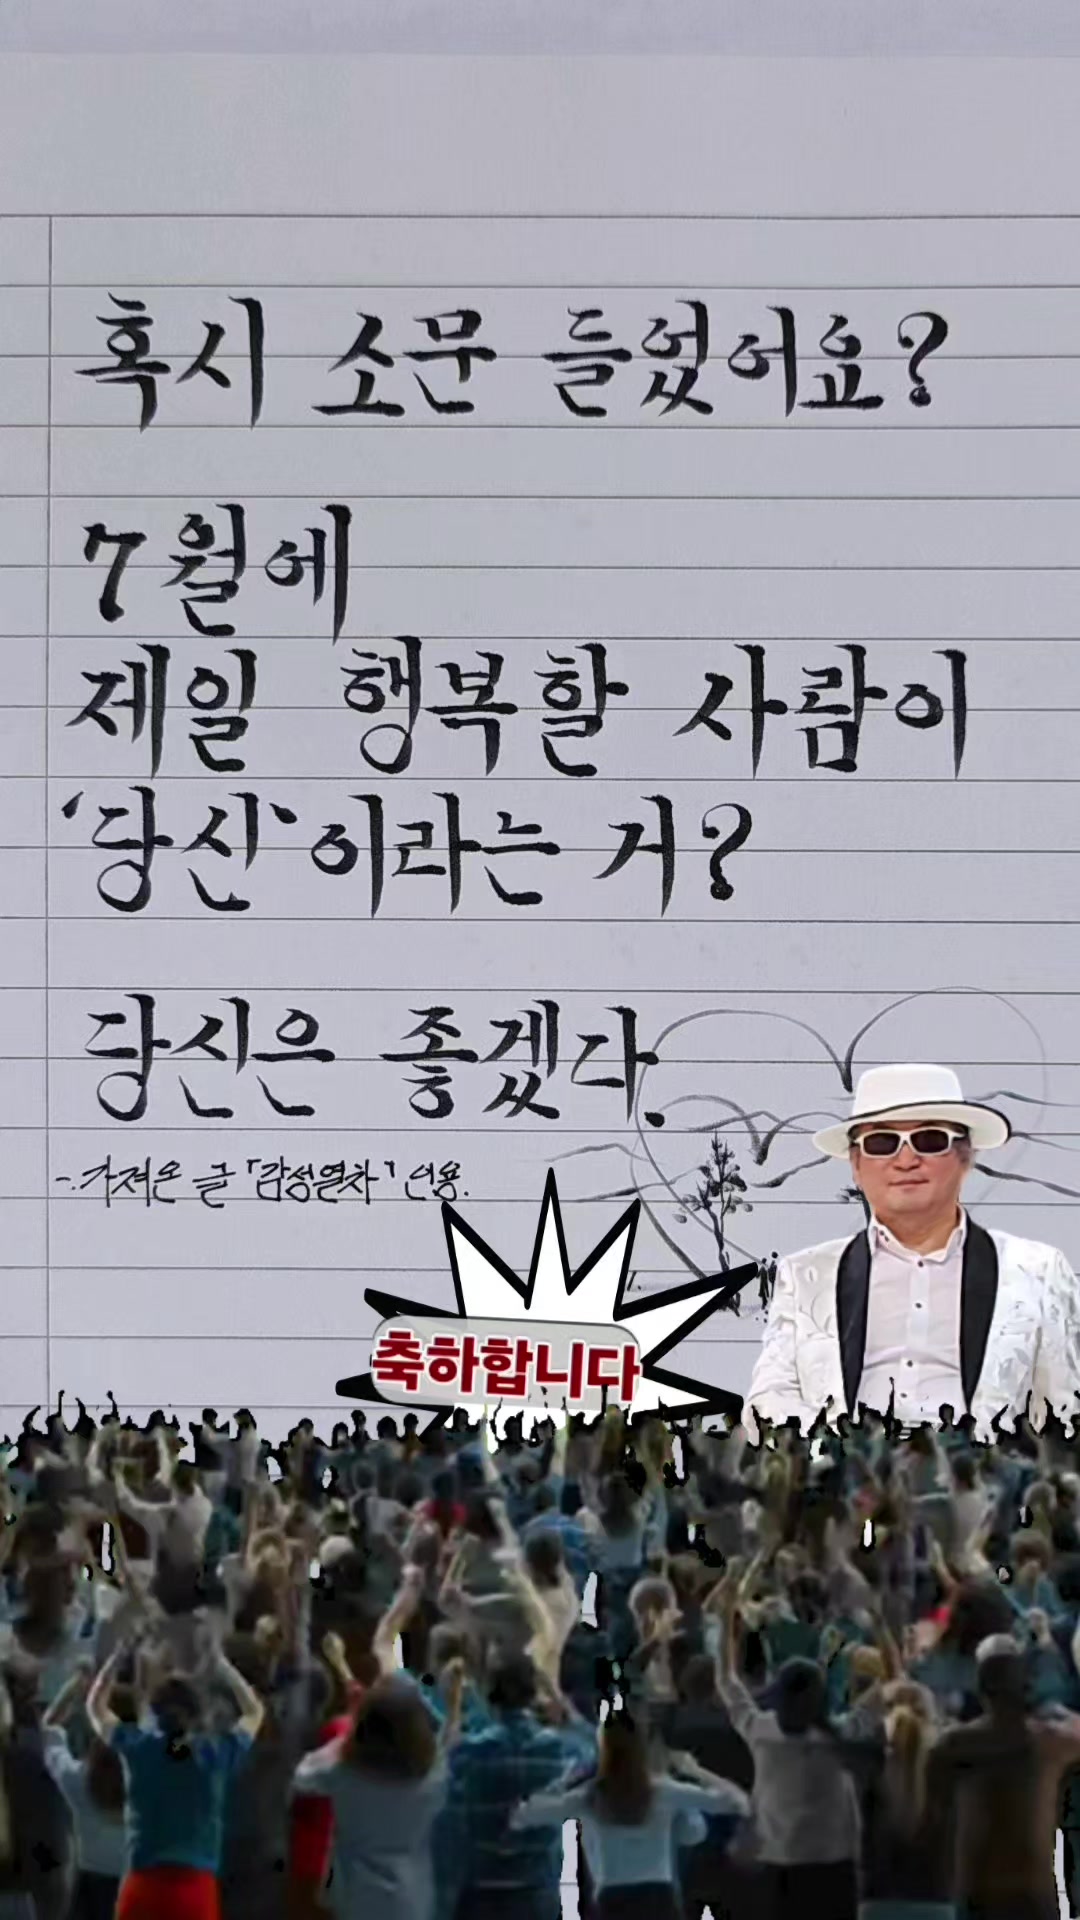 혹시 소문 들었어요?
7월에
제일 행복할 사람이
'당신'이라는 거?
당신은 좋겠다.
-. 가져온 글 「감성열차」 인용.
축하합니다